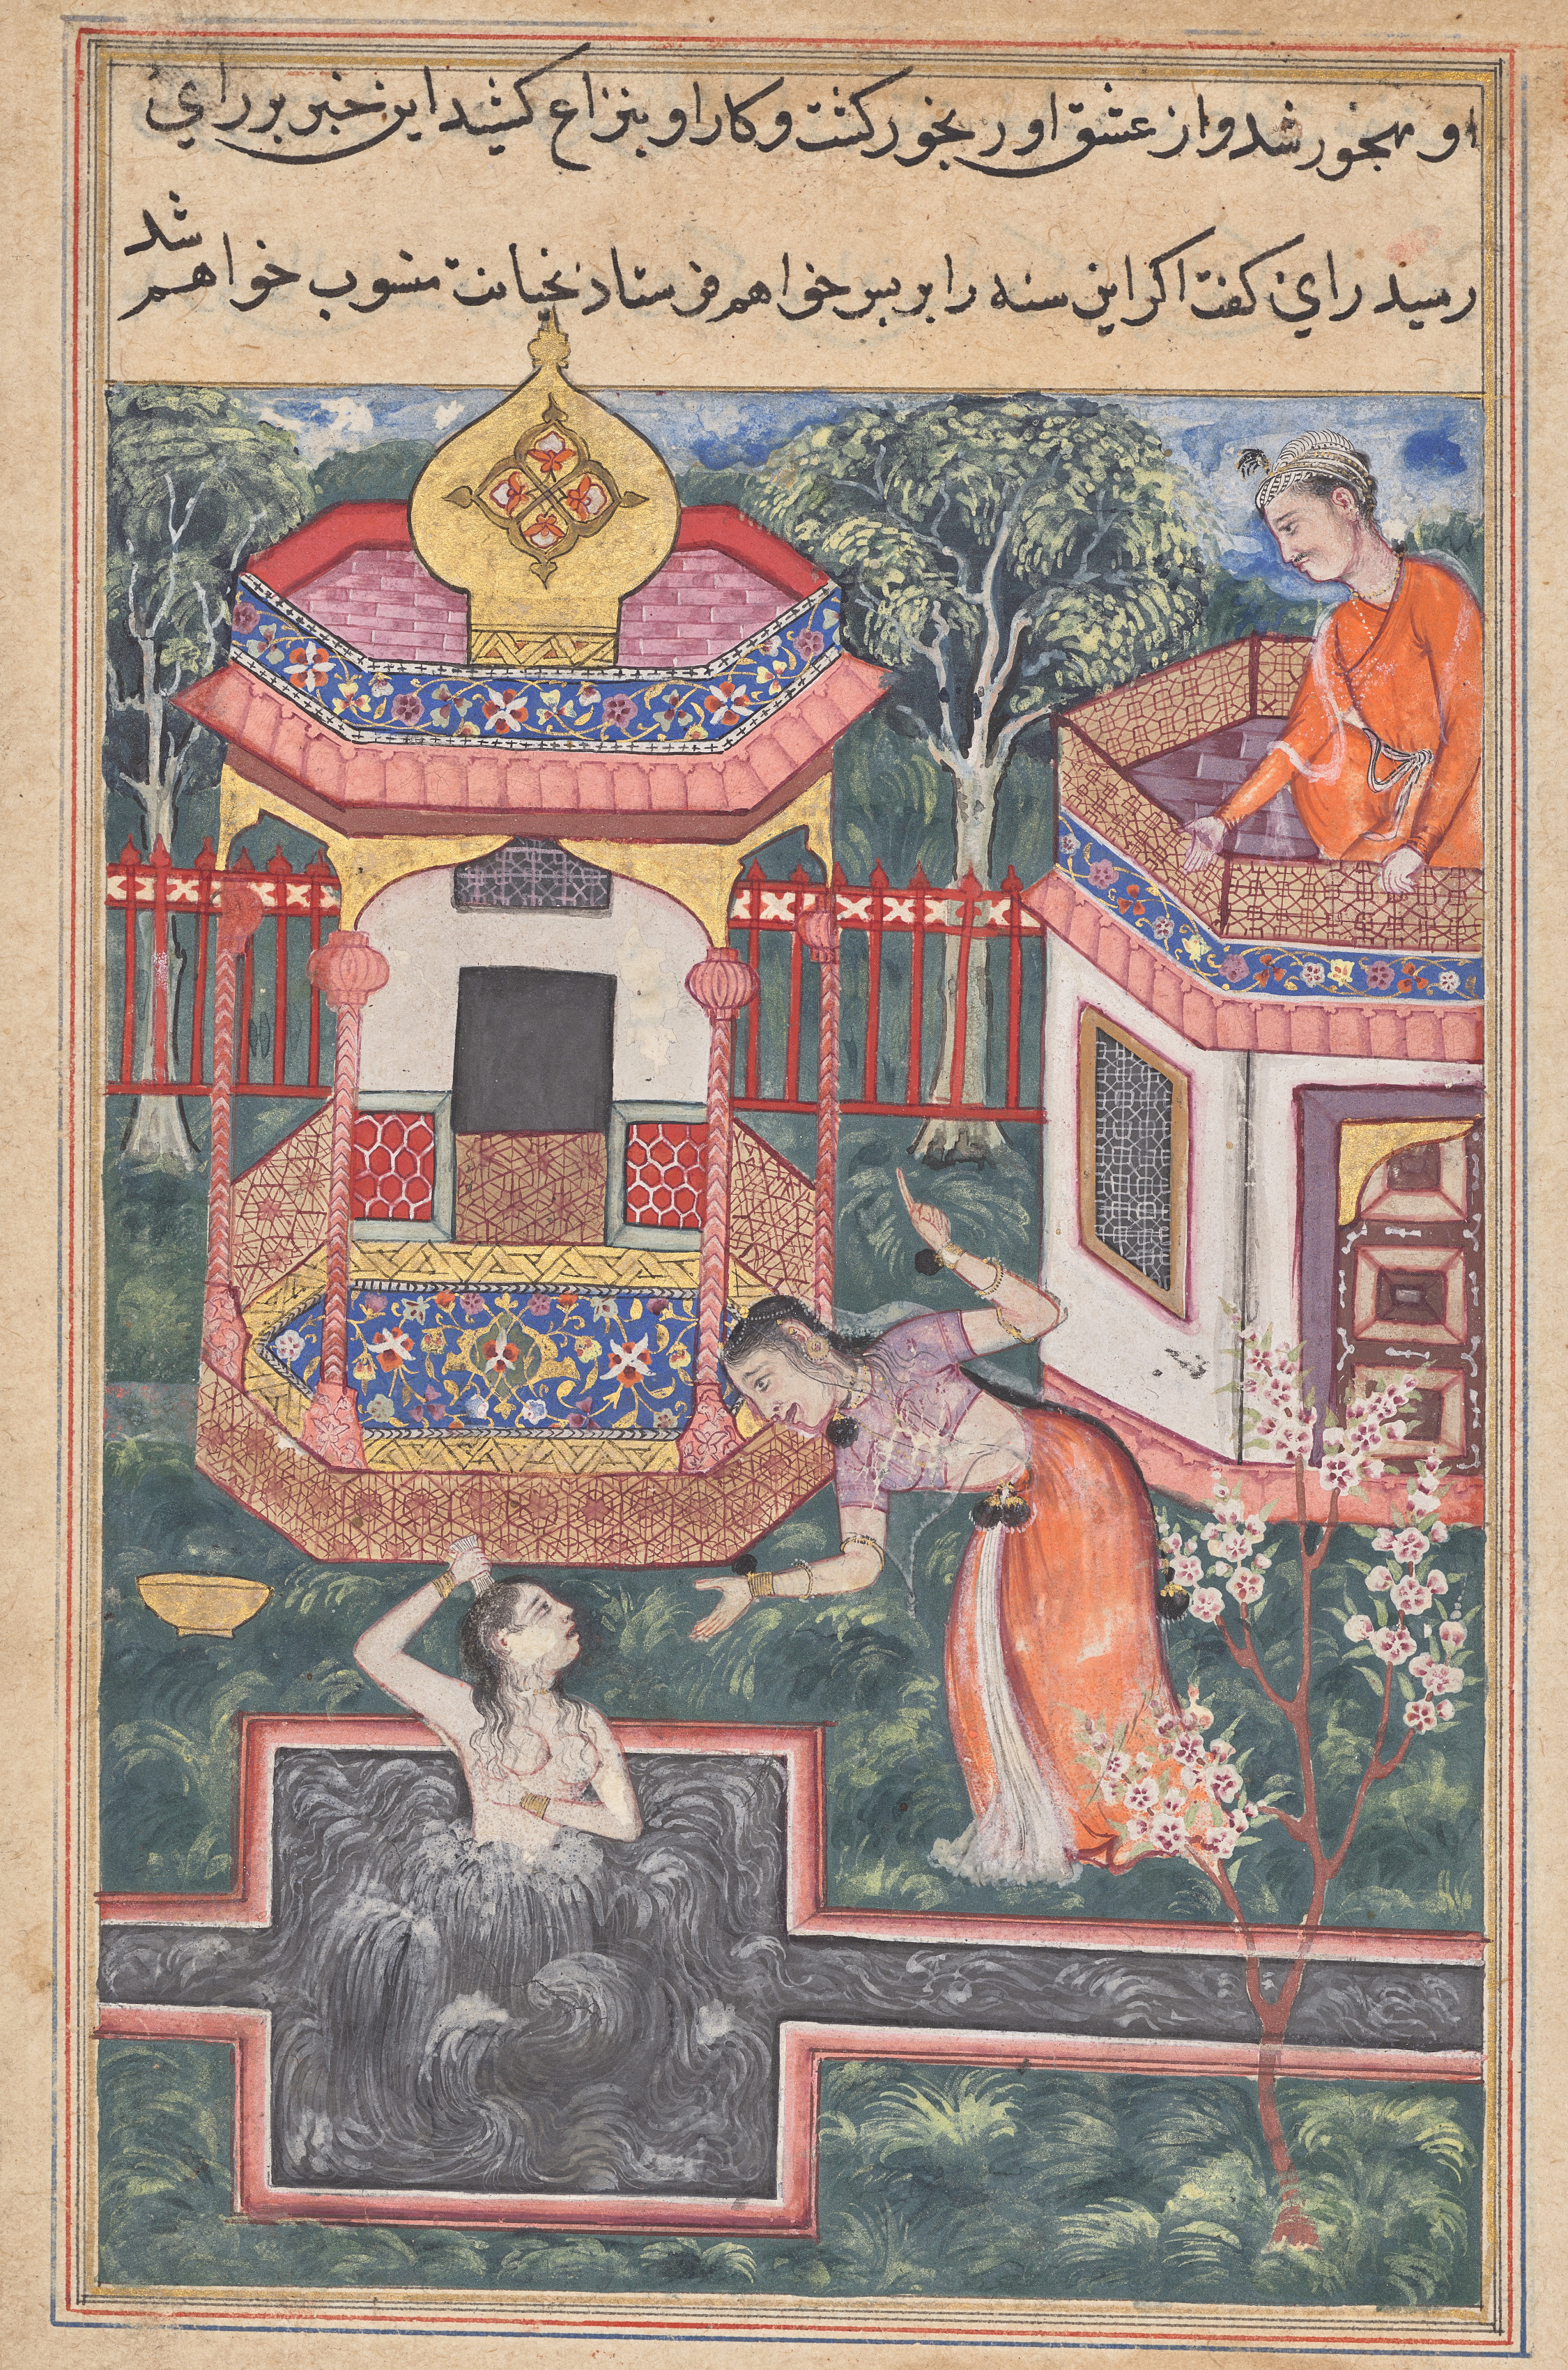 او مهجور شد و از عشق او رنجور کشت و کار او بنزاع کشید این خبر بر راي
رسید راي کفت اکر این سنه را بر پسر خواهم فرستاد بخیانت منسوب خواهم شد